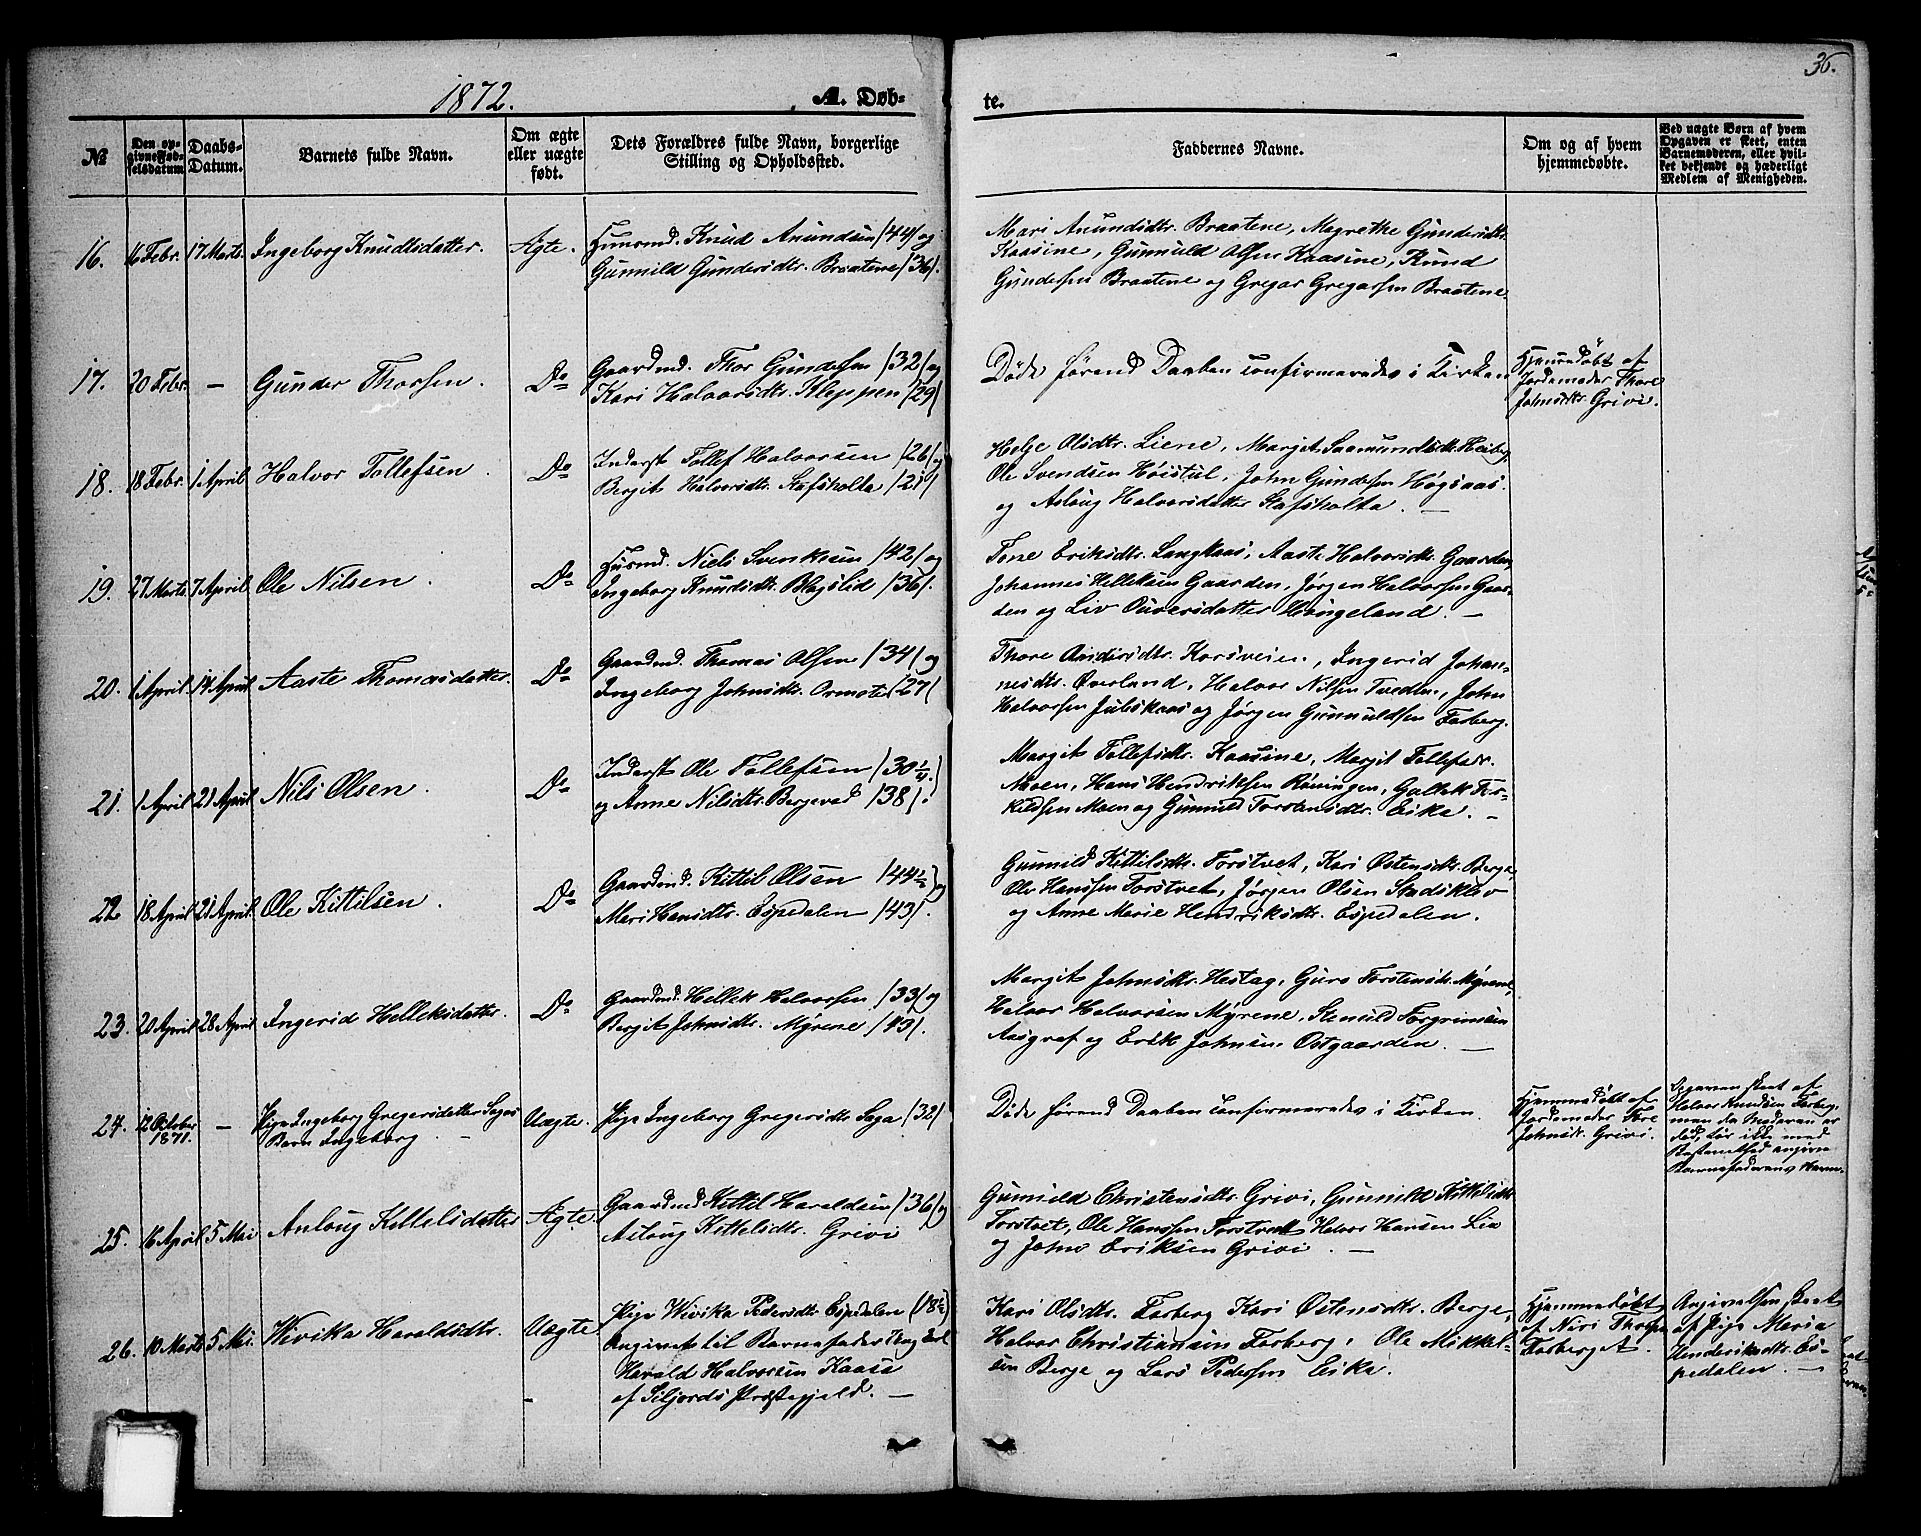 36.
1872.
A. Døb-
te.
№
Den op-
givneFød-
selsdatum
Daabs-
Datum.
Barnets fulde Navn.
Om ægte
eller uægte
født.
Dets Forældres fulde Navn, borgerlige
Stilling og Opholdssted.
Faddernes Navne.
Om og af hvem
hjemmedøbte.
Ved uægte Børn af hvem
Opgaven er skeet, enten
Barnemoderen, eller hvil-
ket bekjendt og hæderligt
Medlem af Menigheden.
16. 16 Febr. 17 Marts. Ingeborg Knudsdatter. Ægte.
Husmd. Knud Anundsen /44/ og
Gunnild Gundersdtr. Braatene /36/.
Mari Anundsdtr. Braatene, Magrethe Gundersdtr.
Kaasine, Gunnuld Olsen Kaasine, Knud
Gundersen Braatene og Gregar Gregarsen Braatene.
17. 20 Febr. — Gunder Thorsen. Do
Gaardmd. Thor Gundersen /32/ og
Kari Halvorsdtr. Kleppen /29/
Døde førend Daaben confirmeredes i Kirken
Hjemmedøbt af
Jordemoder Thore
Johnsdtr. Grivi.
18. 18 Febr. 1 April Halvor Tollefsen. Do
Inderst Tollef Halvorsen /26/ og
Bergit Halvorsdtr. Stafsholta /21/
Helje Olsdtr. Liene, Margit Saamundsdtr. Heiberg
Ole Svendsen Høistul, John Gundersen Høgsaas.
og Aslaug Halvorsdatter Stafsholta. —
19. 27 Marts 7 April Ole Nilsen. Do
Husmd. Niels Svenksen /42/ og
Ingeborg Knudsdtr. Blegslid /36/.
Tone Eriksdtr. Langkaas, Aaste Halvorsdtr. Gaarden,
Johannes Helleksen Gaarden, Jørgen Halvorsen Gaar-
den og Liv Ouversdatter Haugeland. —
20. 1 April 14 April Aaste Thomasdatter. Do
Gaardmd. Thomas Olsen /34/ og
Ingeborg Johnsdtr. Ormote /27/
Thore Andersdtr. Korsveien, Ingerid Johan-
nesdtr. Øverland, Halvor Nilsen Tvedten, John
Halvorsen Juliskaas og Jørgen Gunnuldsen Forberg.
21. 1 April 21 April Nils Olsen. Do
Inderst Ole Tollefsen /30 ¼/
og Anne Nilsdtr. Bergevad /38/.
Margit Tollefsdtr. Kaasine, Margit Tollefsdr.
Moen, Hans Hendriksen Røningen, Gullek Tor-
kildsen Moen og Gunnild Torstensdtr. Eika. —
22. 18 April 21 April Ole Kittilsen. Do
Gaardmd. Kittil Olsen /44 ½/ og
Mari Hansdtr. Espedalen /43/.
Gunnild Kittilsdtr. Torstvet, Kari Østensdtr. Berge
Ole Hanssen Torstvet, Jørgen Olsen Stadsklev
og Anne Marie Hendriksdtr. Espedalen.
23. 20 April 28 April Ingerid Helleksdatter. Do
Gaardmd. Hellek Halvorsen /33/ og
Bergit Johnsdtr. Myrene /43/.
Margit Johnsdtr. Hestag, Guro Torstensdtr. Myrene,
Halvor Halvorsen Myrene, Stenuld Torgrimsen
Aasgraf og Erik Johnsen Østgaarden. —
24. 12 October
1871. — Pige Ingeborg Gregersdatter Sagas
Barn Ingeborg. — Uægte.
Pige Ingeborg Gregersdtr. Saga /32/
Døde førend Daaben confirmeredes i Kirken.
Hjemmedøbt af
Jordemoder Thore
Johnsdt. Grivi.
Opgaven skeet af
Halvor Knudsen Forberg,
men da Moderen er
død, tør ikke med
Bestemthed angives
Barnefaderens Navn.
25. 16 April 5 Mai Aslaug Kittelsdatter Ægte.
Gaardmd Kittil Haraldsen /36/ og
Aslaug Kittelsdtr. Grivi
Gunnild Christensdtr. Grivi, Gunnild Kittelsdtr
Torstvet, Ole Hanssen Torstvet Halvor Hansen Lia
og John Eriksen Grivi. —
26. 10 Marts 5 Mai. Wivika Haraldsdtr. Uægte.
Pige Wivika Pedersdtr. Espedalen /18 ½/
Angivet til Barnefader Ung Karl
Harald Halvorsen Kaasa
af Siljords Præstegjeld. —
Kari Olsdtr. Forberg Kari Østensdtr. Berge,
Halvor Christiansen Forberg, Ole Mikkel-
sen Berge og Lars Pedersen Eika.
Hjemmedøbt
af Niri Thorsen
Forberg
Angivelsen skeet
af Pige Maria
Hendriksdtr. Es-
pedalen. —